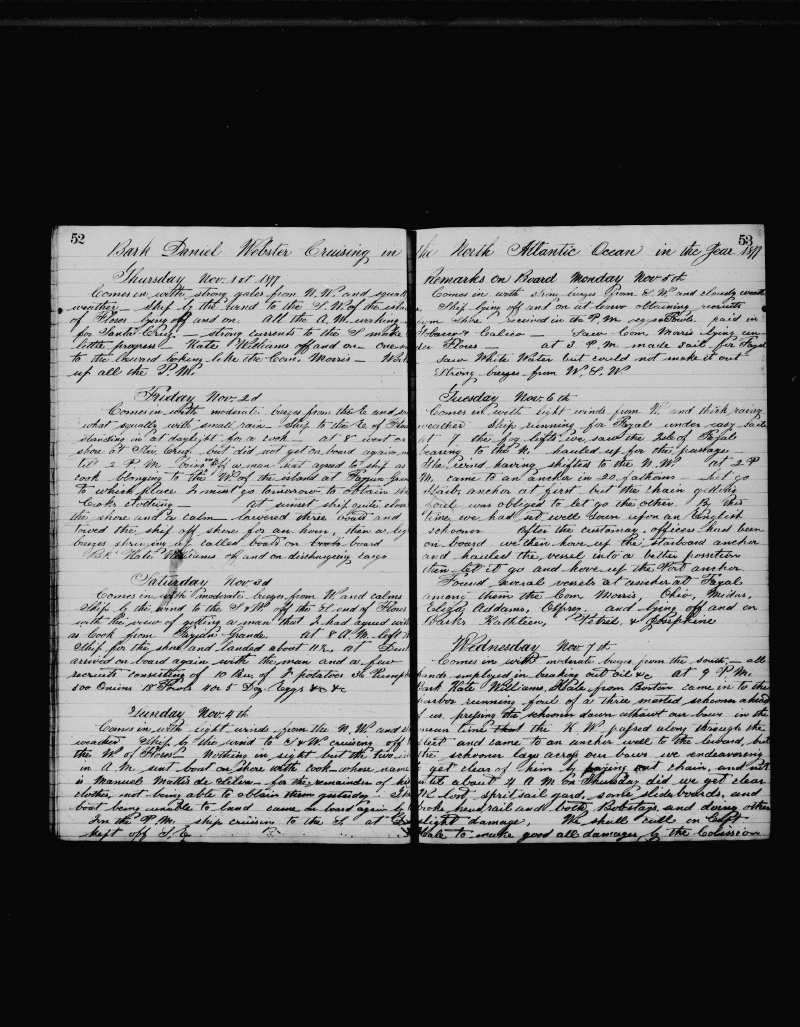 52
Bark Daniel Webster Cruising in
Thursday Nov. 1st 1877
Comes in with strong gales from N.W. and
weather Ship by the wind to the S.W. of the
of Flores lying off and on All the A.M. working
for Santa Cruz strong currents to the S make
little progress Kate Williams off and on
to the leeward looking like the Com. Morris
up all the P.M.
Friday Nov. 2d
Comes in with moderate breezes from the E and
what squally with small rain Ship to the E of
standing in at daylight for a cook at 8 went on
shore at Sta Cruz but did not get on board again
till 2 P.M. a man agreed to ship as
cook blonging to the W. of the island at
to which place I must go tomorrow to obtain the
Cooks clothing at sunset ship quite close
the shore and a calm lowered three boats and
towed the ship off shore for an hour, then a
breeze springing up called boats on board
Bk Kate Williams off and on dischargeing cargo
Saturday Nov 3d
Comes in with moderate breezes from W and calms
Ship by the wind to the S & W off the end of Flores
with the view of getting a man that I had agreed with
as Cook from Grande at 8 A.M. left
Ship for the shore and landed about 11
arrived on board again with the man and a few
recruits consisting of 10 Bu of potatoes
500 Onions 18 Fowls 4 or 5 Doz Eggs &c &c
Sunday Nov. 4th
Comes in with light winds from the N.W. and
weather Ship by the wind to S & W cruising off
the W of Flores Nothing in sight but the
in A.M. sent boat on shore with cook whose name
is Manuel de for the remainder of his
clothes, not being able to obtain them yesterday
boat being unable to land came on board again
In the P.M. ship cruising to the S at
kept off S.E.
53
the North Atlantic Ocean in the Year 1877
Remarks on Board Monday Nov 5th
Comes in with breezes from S.W. and cloudy
Ship lying off and on at Flores obtaining recruits
received in the P.M. Fowls paid in
Tobacco & Calico Saw Com Morris lying
Flores at 3 P.M. made sail for Fayal
Saw White Water but could not make it out
Strong breezes from W.S.W
Tuesday Nov. 6th
Comes in with light winds from W. and thick rainy
weather Ship running for Fayal under easy sail
at 7 the fog lifts we saw the Isle of Fayal
bearing to the N. hauled up for the passage
The wind having shifted to the N.W. at 2 P
M. came to an anchor in 20 fathoms let go
Starb. anchor at first but the chain getting
foul was obliged to let go the other. By this
time we had set well down upon an English
schooner After the customary officers had been
on board we then hove up the starboard anchor
and hauled the vessel into a better possition
then let it go and hove up the Port anchor
Found several vessels at anchor at Fayal
among them the Com Morris, Ohio, Midas,
Eliza Addams, Osprey, and lying off and on
Barks Kathleen, Petrel, & Josephine
Wednesday Nov 7th
Comes in with moderate breezes from the south, all
hands employed in breaking out oil &c at 9 P.M.
Bark Kate Williams, Hale, from Boston came in to the
harbor running foul of a three masted schooner ahead
of us, pressing the schooner down athwart our bows in the
mean time that the K.W. passed along through the
fleet and came to an anchor well to the leeward, but
the schooner lays across our bows we endeavoring
to get clear of him by paying out chain, and not
until about 4 A.M. on Thursday did we get clear
spritsail yard, some slide boards, and
broke rail and both Bobstays, and doing other
slight damage, We shall call on Capt.
Hale to make good all damages by the Colission